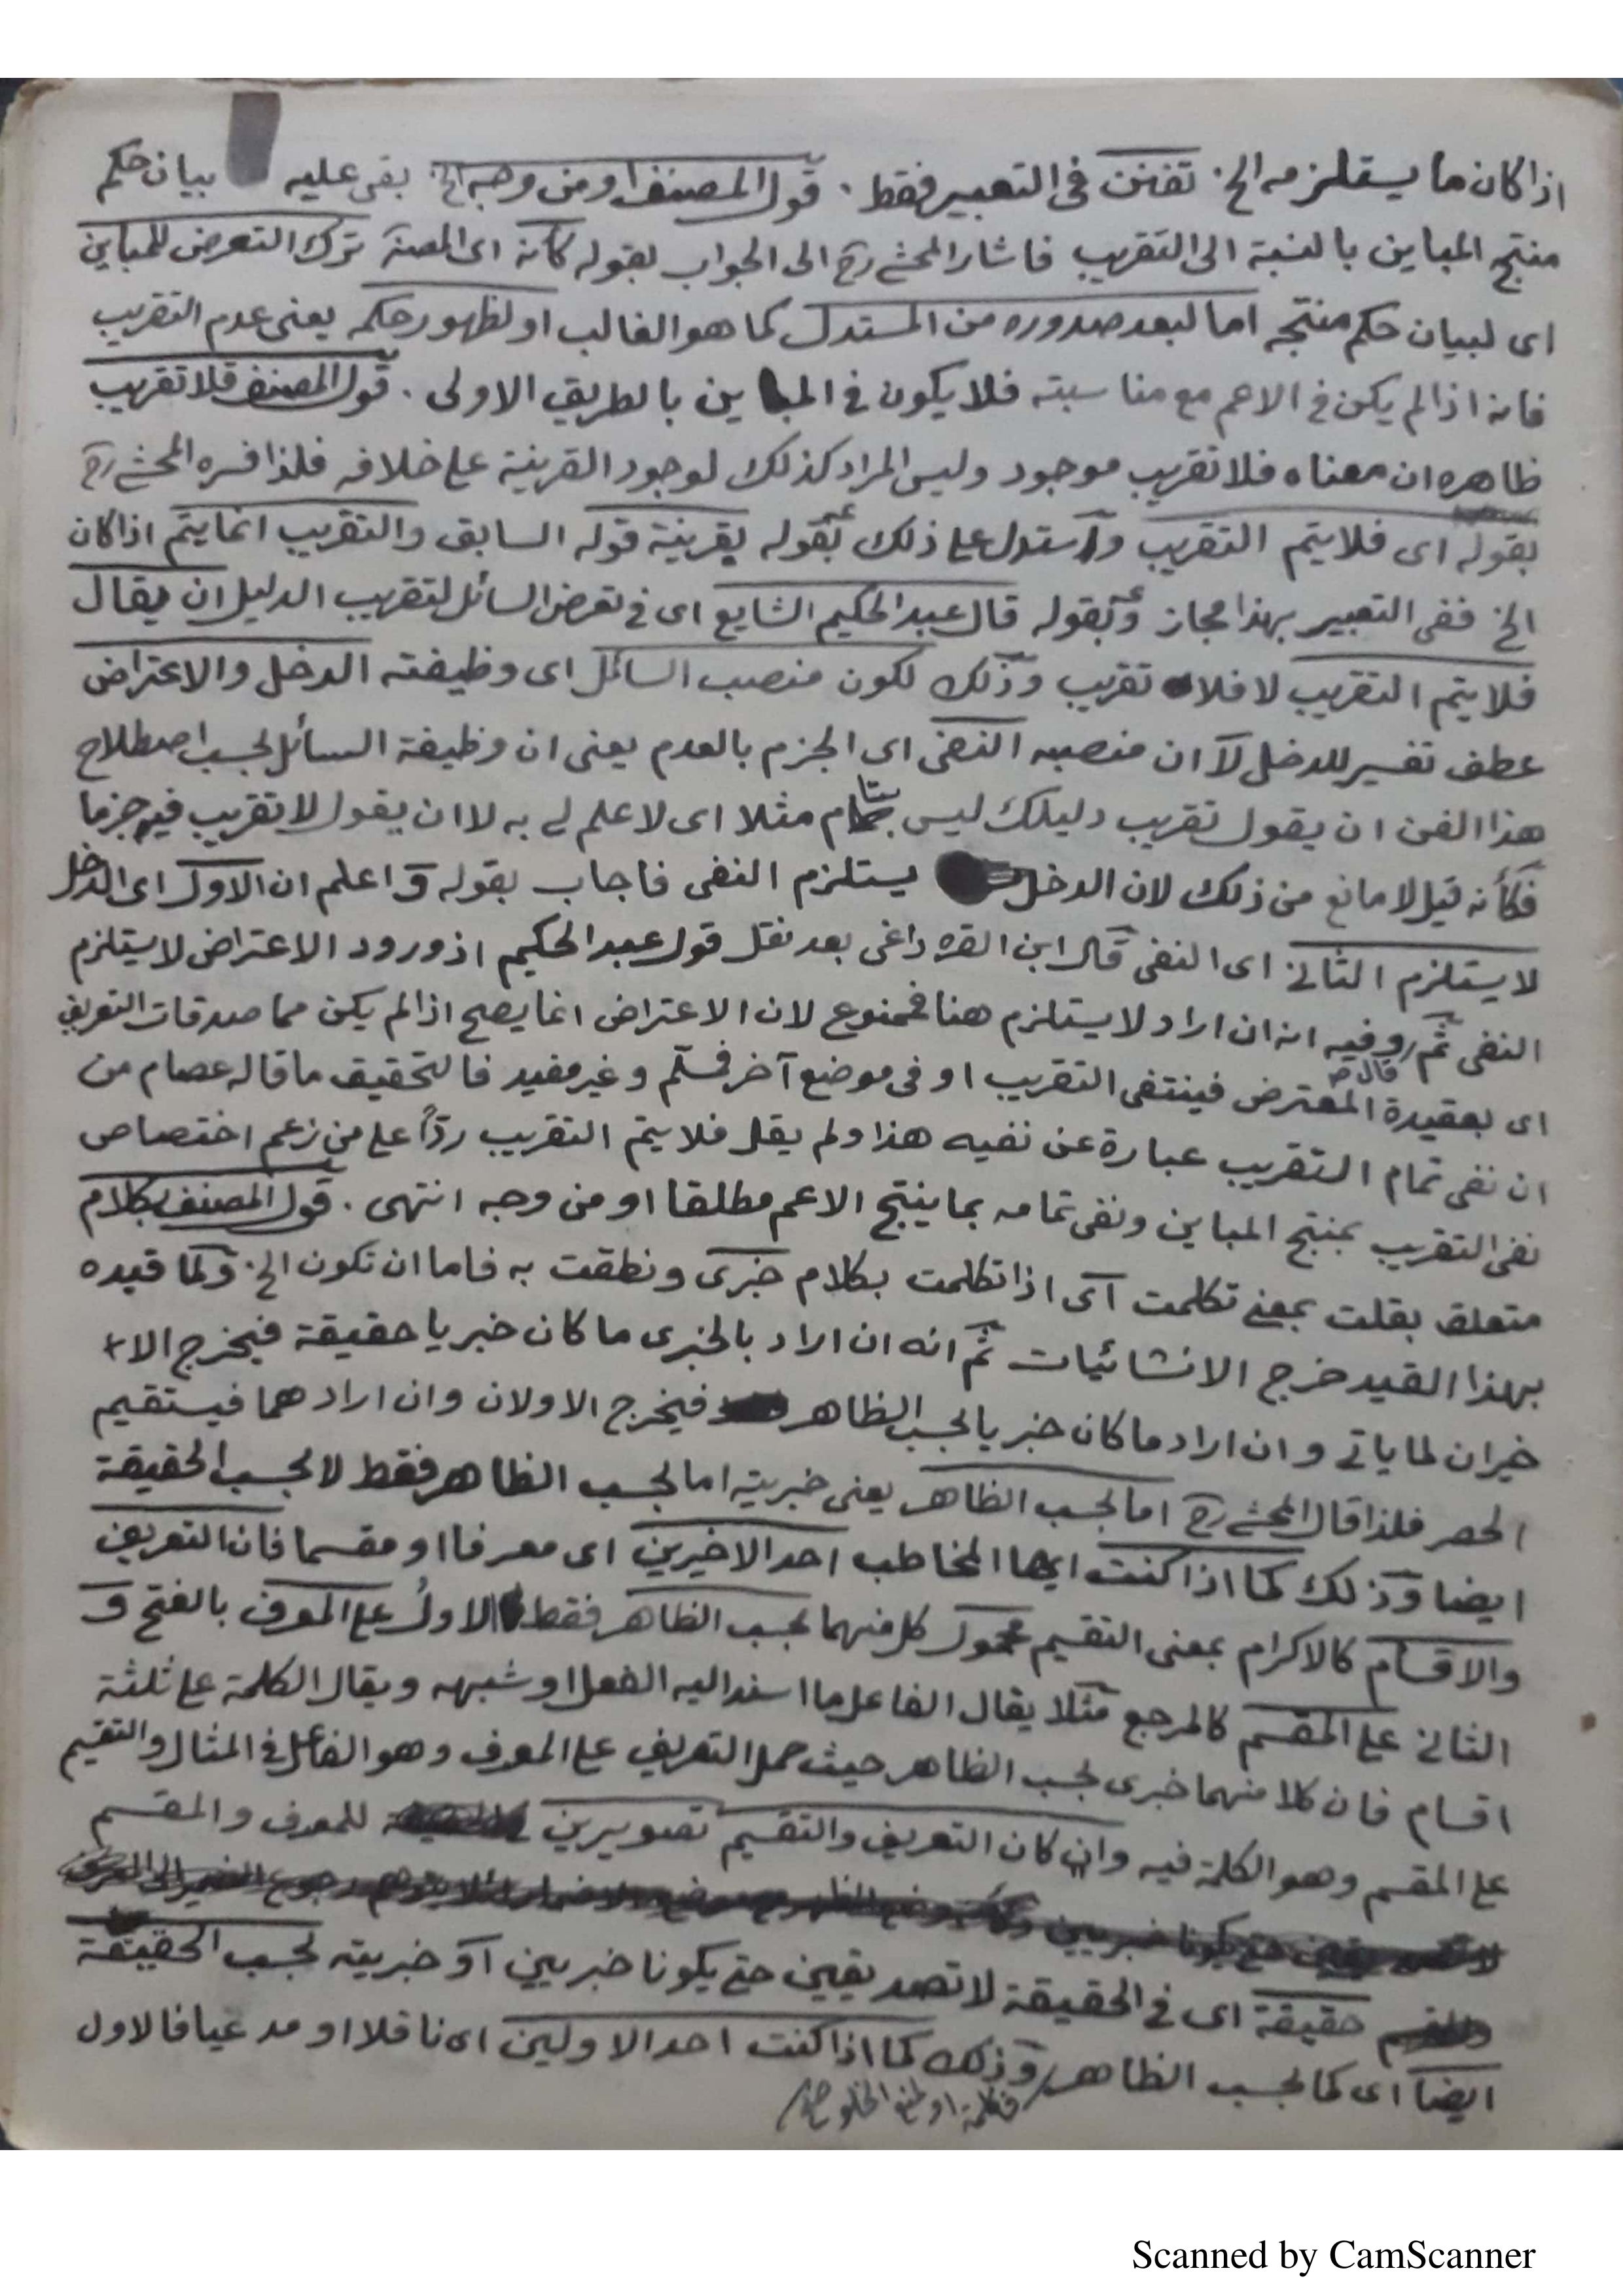 اذا كان ما يستلزمه الخ. تفنن فى التعبير فقط. قول المصنف او من وجه الخ بقى عليه بيان حكم
منتج المباين بالنسبة الى التقريب فاشار المحشى رح الى الجواب بقوله كانه اى المصنف ترك التعرض للمباين
اى لبيان حكم منتجه اما لبعد صدوره من المستدل كما هو الغالب او لظهور حكمه يعنى عدم التقريب
فانه اذا لم يكن فى الاعم مع مناسبته فلا يكون فى المباين بالطريق الاولى. قول المصنف فلا تقريب
ظاهره ان معناه فلا تقريب موجود وليس المراد كذلك لوجود القرينة على خلافه فلذا فسره المحشى رح
بقوله اى فلا يتم التقريب واستدل على ذلك بقوله بقرينة قوله السابق والتقريب انما يتم اذا كان
الخ ففى التعبير بهذا مجاز وبقوله قال عبد الحكيم الشايع اى فى تعرض السائل لتقريب الدليل ان يقال
فلا يتم التقريب لا فلا تقريب وذلك لكون منصب السائل اى وظيفته الدخل والاعتراض
عطف تفسير للدخل لا ان منصبه النفى اى الجزم بالعدم يعنى ان وظيفة السائل بحسب اصطلاح
هذا الفن ان يقول تقريب دليلك ليس بتام مثلا اى لا علم لى به لا ان يقول لا تقريب فيه جزما
فكأنه قيل لا مانع من ذلك لان الدخل يستلزم النفى فاجاب بقوله واعلم ان الاول اى الدخل
لا يستلزم الثانى اى النفى قال ابن القره داغى بعد نقل قول عبد الحكيم اذ ورود الاعتراض لا يستلزم
النفى ثم وفيه انه ان اراد لا يستلزم هنا فممنوع لان الاعتراض انما يصح اذا لم يكن مما صدقات التعريف
قال
اى بعقيدة المعترض فينتفى التقريب او فى موضع آخر فمسلم وغير مفيد فالتحقيق ما قاله عصام من
ان نفى تمام التقريب عبارة عن نفيه هذا ولم يقل فلا يتم التقريب ردّاً على من زعم اختصاص
نفى التقريب بمنتج المباين ونفى تمامه بما ينتج الاعم مطلقا او من وجه انتهى. قول المصنف بكلام
متعلق بقلت بمعنى تكلمت اى اذا تكلمت بكلام خبرى ونطقت به فاما ان تكون الخ. ولما قيده
بهذا القيد خرج الانشائيات ثم انه ان اراد بالخبرى ما كان خبريا حقيقة فيخرج الا
خيران لما ياتى وان اراد ما كان خبريا بحسب الظاهر فيخرج الاولان وان ارادهما فيستقيم
الحصر فلذا قال المحشى رح اما بحسب الظاهر يعنى خبريته اما بحسب الظاهر فقط لا بحسب الحقيقة
ايضا وذلك كما اذا كنت ايها المخاطب احد الاخيرين اى معرفا او مقسما فان التعريف
والاقسام كالاكرام بمعنى التقسيم محمول كل منهما بحسب الظاهر فقط الاول على المعرف بالفتح و
الثانى على المقسم كالمرجع مثلا يقال الفاعل ما اسند اليه الفعل او شبهه ويقال الكلمة على ثلثة
اقسام فان كلا منهما خبرى بحسب الظاهر حيث حمل التعريف على المعرف وهو الفاعل فى المثال والتقسيم
على المقسم وهو الكلمة فيه وان كان التعريف والتقسيم تصويرين للمعرف والمقسم
حقيقة اى فى الحقيقة لا تصديقين حتى يكونا خبريين او خبريته بحسب الحقيقة
ايضا اى كما بحسب الظاهر وذلك كما اذا كنت احد الاولين اى ناقلا او مدعيا فالاول
فكلمة او لمنع الخلو
Scanned by CamScanner